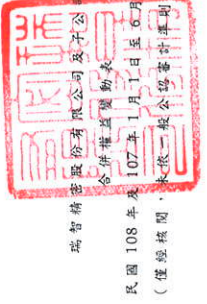 瑞智精密股份有限公司及子公
合併權益變動表
民國 108 年及 107 年 1 月 1 日至 6 月
(僅經核閱,未依一般公認審計準則